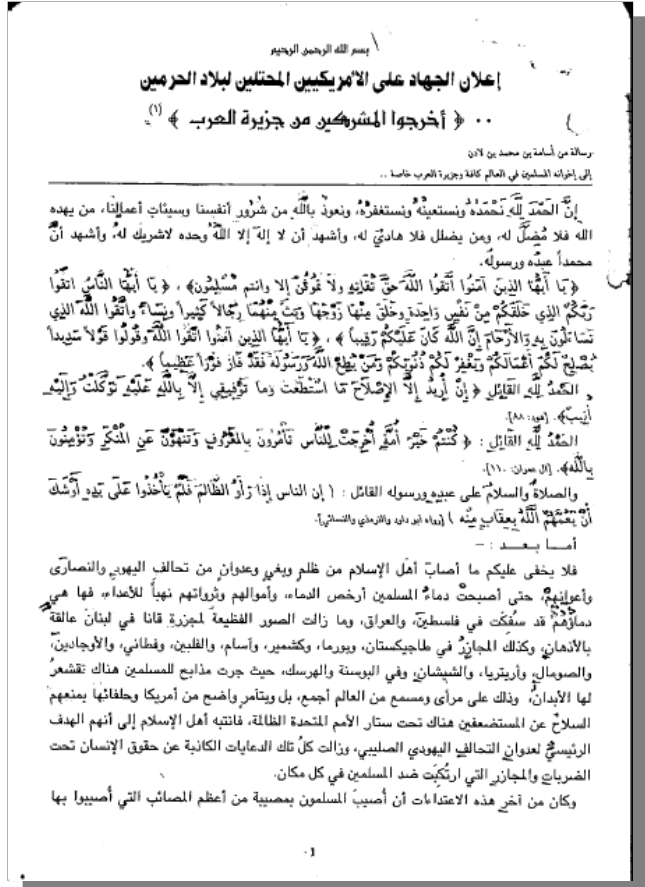 بسم الله الرحمن الرحيم
إعلان الجهاد على الأمريكيين المحتلين لبلاد الحرمين
.. ﴿ أخرجوا المشركين من جزيرة العرب ﴾ (١).
رسالة من أسامة بن محمد بن لادن
إلى إخوانه المسلمين في العالم كافة وجزيرة العرب خاصة ..
إنَّ الحَمْدَ لِلَّهِ نَحْمَدُهُ ونستعينُهُ ونستغفرُهُ، ونعوذُ بِاللَّهِ من شُرُورِ أنفسنا وسيئاتِ أعمالِنَا، من يهده
الله فلا مُضِلَّ له، ومن يضلل فلا هاديَ له، وأشهد أن لا إلهَ إلا اللَّهُ وحده لاشريك لهُ، وأشهد أنَّ
محمداً عبدُه ورسولُه.
﴿يَا أَيُّهَا الذِينَ آمَنُوا اتَّقُوا اللَّهَ حَقَّ تُقَاتِهِ ولَا تَمُوتُنَّ إلا وانتم مُّسْلِمُون﴾ ، ﴿ يَا أَيُّهَا النَّاسُ اتَّقُوا
رَبَّكُمُ الذِي خَلَقَكُمْ مِنْ نَفْسٍ وَاحِدَةٍ وخَلَقَ مِنْهَا زَوْجَهَا وَبَثَّ مِنْهُمَا رِجَالاً كَثِيراً ونِسَاءً واتَّقُوا اللَّهَ الذِي
تَسَاءَلُونَ بِهِ وَالأَرْحَامَ إِنَّ اللَّهَ كَانَ عَلَيْكُمْ رَقِيباً ﴾ ، ﴿ يَا أَيُّهَا الَّذِين آمَنُوا اتَّقُوا اللَّهَ وقُولُوا قَوْلاً سَدِيداً
يُصْلِحْ لَكُمْ أَعْمَالَكُمْ وَيَغْفِرْ لَكُمْ ذُنُوبَكُمْ وَمَنْ يُطِعِ اللَّهَ وَرَسُولَهُ فَقَدْ فَازَ فَوْزاً عَظِيماً ﴾.
الحَمْدُ لِلَّهِ القَائِل ﴿ إِنْ أُرِيدُ إِلَّا الإِصْلَاحَ مَا اسْتَطَعْتُ وَمَا تَوْفِيقِي إِلَّا بِاللَّهِ عَلَيْهِ تَوَكَّلْتُ وَإِلَيْهِ
أُنِيبُ﴾. [هود: ٨٨].
الحَمْدُ لِلَّهِ القَائِلِ : ﴿ كُنْتُمْ خَيْرَ أُمَّةٍ أُخْرِجَتْ لِلنَّاسِ تَأْمُرُونَ بِالمَعْرُوفِ وتَنْهَوْنَ عَنِ المُنْكَرِ وَتُؤْمِنُونَ
بِاللَّهِ﴾. [آل عمران: ١١٠].
والصلاةُ والسلامُ على عبدِهِ ورسوله القائل : ( إن الناس إذا رَأَوُ الظَّالِمَ فَلَمْ يَأْخُذُوا عَلَى يَدِهِ أَوْشَكَ
أَنْ يَعُمَّهُمُ اللَّهُ بِعِقَابٍ مِنْهُ ) [رواه ابو داود والترمذي والنسائي].
أمــا بــعــد : –
فلا يخفى عليكم ما أصابَ أهل الإسلام من ظلمٍ وبغيٍ وعدوانٍ من تحالف اليهودِ والنصارَى
وأعوانِهِمْ، حتى أصبحتْ دماءُ المسلمين أرخص الدماء، وأموالهم وثرواتهم نهباً للأعداء، فها هي
دماؤُهُمْ قد سُفكَت في فلسطينَ، والعراق، وما زالت الصور الفظيعة لمجزرةِ قانا في لبنانَ عالقةً
بالأذهانِ، وكذلك المجازرُ في طاجيكستان، وبورما، وكشمير، وآسام، والفلبين، وفطاني، والأوجادين،
والصومالِ، وأريتريا، والشيشانِ، وفي البوسنة والهرسك، حيث جرت مذابح للمسلمين هناك تقشعرُّ
لها الأبدانُ، وذلك على مرأى ومسمع من العالم أجمع، بل وبتآمرٍ واضح من أمريكا وحلفائِهَا بمنعِهِم
السلاحَ عن المستضعفين هناك تحت ستار الأمم المتحدة الظالمة، فانتبه أهل الإسلام إلى أنهم الهدف
الرئيسيُّ لعدوانِ التحالفِ اليهودي الصليبي، وزالت كلُّ تلك الدعايات الكاذبة عن حقوق الإنسان تحت
الضرباتِ والمجازرِ التي ارتُكِبَت ضد المسلمين في كل مكان.
وكان من آخرِ هذه الاعتداءات أن أُصيبَ المسلمون بمصيبة من أعظم المصائب التي أُصيبوا بها